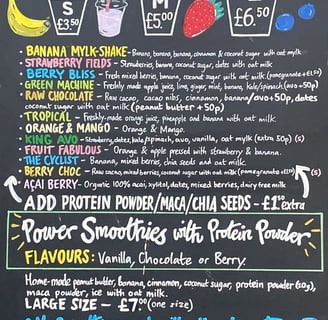 S M L
£3.50 £5.00 £6.50
• BANANA MYLK-SHAKE - Banana, banana, banana, cinnamon & coconut sugar with oat mylk
• STRAWBERRY FIELDS - Strawberries, banana, coconut sugar, dates with oat milk
• BERRY BLISS - Fresh mixed berries, banana, coconut sugar with oat milk (pomegranate +£1.50)
• GREEN MACHINE - Freshly made apple juice, lime, ginger, mint, banana, kale/spinach (avo +50p)
• RAW CHOCOLATE - Raw cacao, cacao nibs, cinnamon, banana/avo+50p, dates
coconut sugar with oat milk (peanut butter +50p)
• TROPICAL - Freshly-made orange juice, pineapple and banana with oat milk.
• ORANGE & MANGO - Orange & Mango.
• KING AVO - Strawberry, dates, kale/spinach, avo, vanilla, oat mylk (extra 50p) (s)
• FRUIT FABULOUS - Orange & apple pressed with strawberry & banana.
• THE CYCLIST - Banana, mixed berries, chia seeds and oat milk.
• BERRY CHOC - Raw cacao, mixed berries, coconut sugar with oat milk (pomegranate +£1.50) (s)
• AÇAI BERRY - Organic 100% acai, xylitol, dates, mixed berries, dairy free milk
ADD PROTEIN POWDER/MACA/CHIA SEEDS - £1.50 extra
Power Smoothies with Protein Powder
FLAVOURS: Vanilla, Chocolate or Berry
Home-made peanut butter, banana, cinnamon, coconut sugar, protein powder (30g),
maca powder, ice with oat milk.
LARGE SIZE - £7.00 (one size)